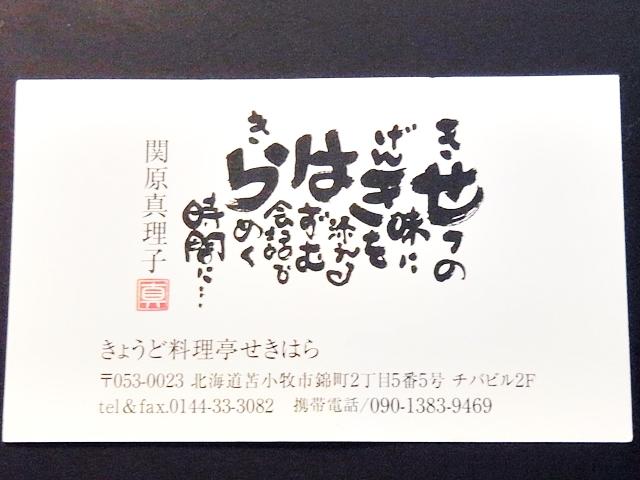 きせつの
味に
げんきを
添えて
はずむ
会話で
きらめく
時間に…
関原真理子
真
きょうど料理亭せきはら
〒053-0023 北海道苫小牧市錦町2丁目5番5号 チバビル2F
tel&fax.0144-33-3082 携帯電話/090-1383-9469